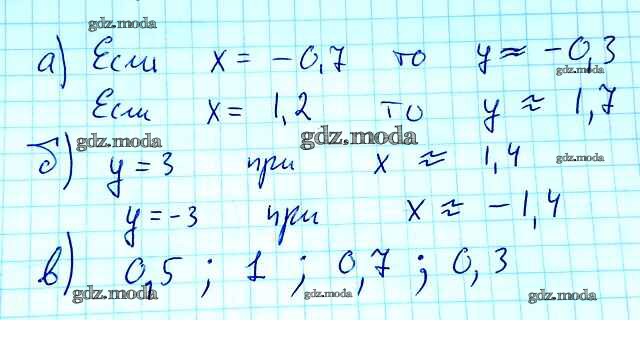 gdz.moda
а) Если x = -0,7 то y ≈ -0,3
gdz.moda
Если x = 1,2 то y ≈ 1,7
gdz.moda gdz.moda
б) y = 3 при x ≈ 1,4 gdz.moda
y = -3 при x ≈ -1,4
в) 0,5 ; 1 ; 0,7 ; 0,3
gdz.moda gdz.moda gdz.moda